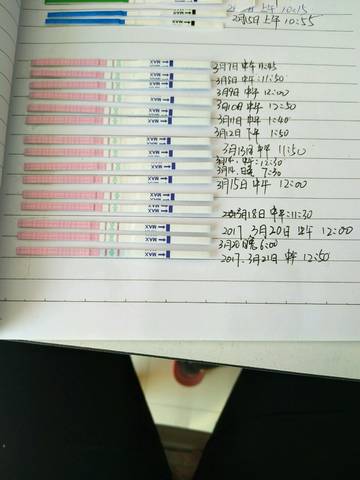 上午 10:15
2月15日 上午 10:55
3月7日 中午 11:45
3月8日 中午:11:50
3月9日 中午 12:00
3月10日 中午 12:50
3月11日 中午 1:40
3月12日 下午 1:50
3月13日 中午 11:50
3月14. 中午:12:30
3月14. 晚 7:30
3月15日 中午 12:00
3月18日 中午:11:30
2017. 3月20日 中午 12:00
3月20日 晚 6:00
2017. 3月21日 中午 12:50
MAX
MAX
MAX
MAX
MAX
MAX
MAX
MAX
MAX
MAX
MAX
MAX
MAX
MAX